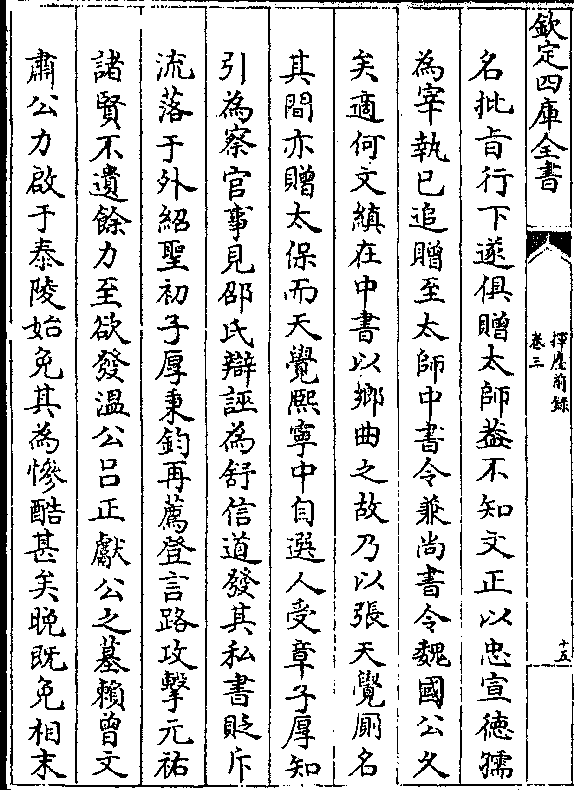 欽定四庫全書
揮麈前錄
卷三
十五
名批旨行下遂俱贈太師葢不知文正以忠宣徳孺
為宰執已追贈至太師中書令兼尚書令魏國公久
矣適何文縝在中書以鄉曲之故乃以張天覺厠名
其間亦贈太保而天覺熙寧中自選人受章子厚知
引為察官事見邵氏辯誣為舒信道發其私書貶斥
流落于外紹聖初子厚秉鈞再薦登言路攻擊元祐
諸賢不遺餘力至欲發溫公呂正獻公之墓賴曾文
肅公力啟于泰陵始免其為慘酷甚矣晚既免相末